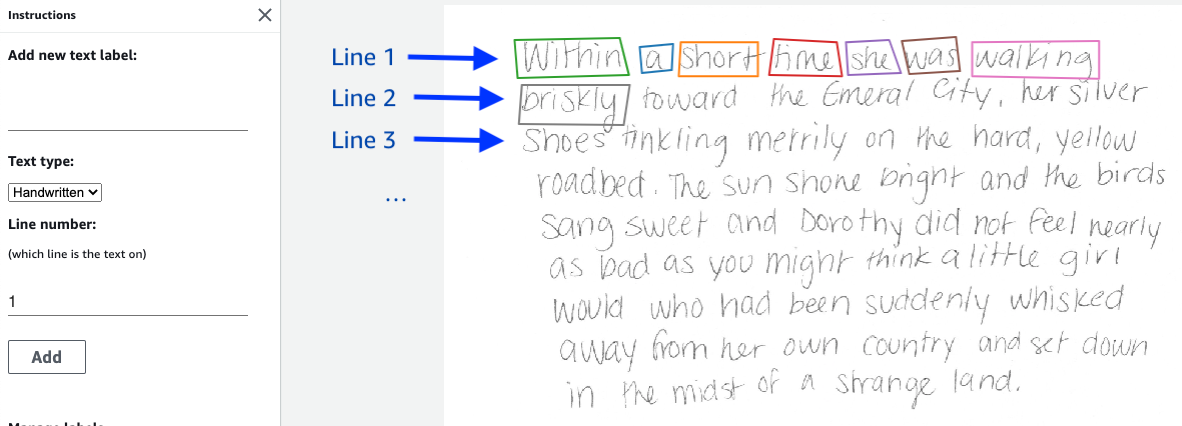 Instructions
Add new text label:
Text type:
Handwritten
Line number:
(which line is the text on)
1
Add
Line 1
Line 2
Line 3
...
Within a short time she was walking
briskly toward the Emeral City, her silver
Shoes tinkling merrily on the hard, yellow
roadbed. The sun shone bright and the birds
sang sweet and Dorothy did not feel nearly
as bad as you might think a little girl
would who had been suddenly whisked
away from her own country and set down
in the midst of a strange land.